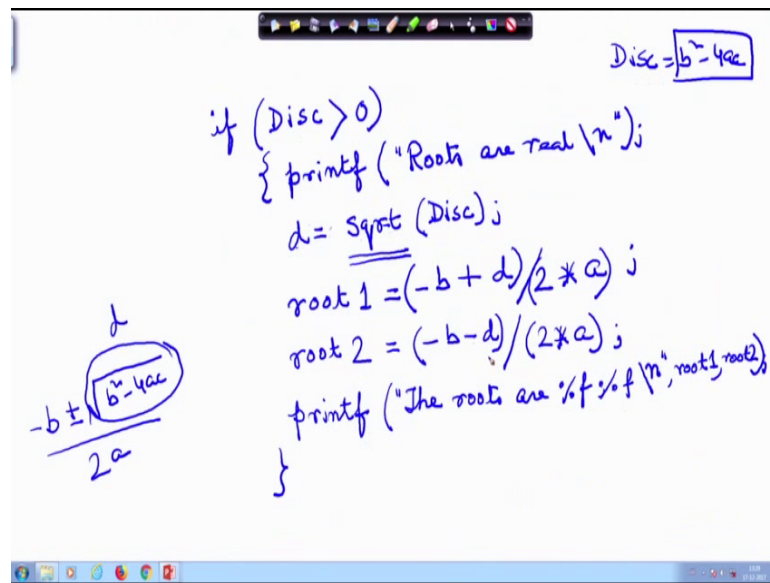 Disc = b² - 4ac
if (Disc > 0)
{ printf ("Roots are real \n");
d = sqrt (Disc);
root 1 = (-b + d)/(2 * a);
root 2 = (-b - d)/(2 * a);
printf ("The roots are %f %f \n", root1, root2);
}
d
-b ± √b² - 4ac
2a